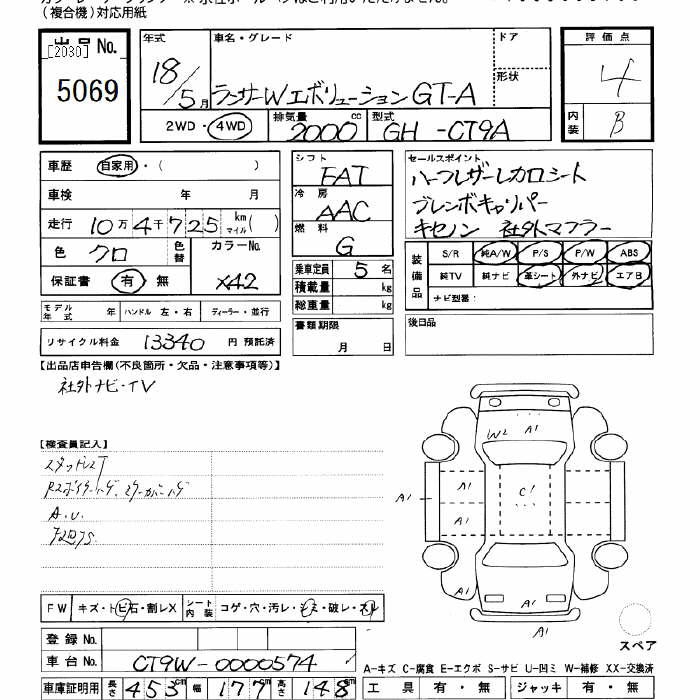 (複合機)対応用紙
出品 No.
[2030]
5069
年式 車名・グレード ドア
18/5月 ランサーWエボリューション GT-A
形状
評価点
4
内装 B
2WD・4WD 排気量 2000 cc 型式 GH-CT9A
車歴 自家用・( )
車検 年 月
走行 10万4千725 km マイル( )
色 クロ 色替 カラーNo. X42
保証書 有・無
シフト FAT
冷房 AAC
燃料 G
乗車定員 5 名
積載量 kg
総重量 kg
書類期限 月 日
セールスポイント
ハーフレザーレカロシート
ブレンボキャリパー
キセノン 社外マフラー
装備品 S/R 純A/W P/S P/W ABS
純TV 純ナビ 革シート 外ナビ エアB
ナビ型番:
後日品
モデル年式 年 ハンドル 左・右 ディーラー・並行
リサイクル料金 13340 円 預託済
【出品店申告欄(不良箇所・欠品・注意事項等)】
社外ナビ・TV
【検査員記入】
スタッドレスT
A.U.
W2 A1
A1
A1 C1
A1
A1 A1
A1
FW キズ・トビ石・割レX シート内装 コゲ・穴・汚レ・シミ・破レ・スレ
登録 No.
車台 No. CT9W-0000574
車庫証明用 長さ 453 cm 幅 177 cm 高さ 148 cm
スペア
A-キズ C-腐食 E-エクボ S-サビ U-凹ミ W-補修 XX-交換済
工具 有・無 ジャッキ 有・無